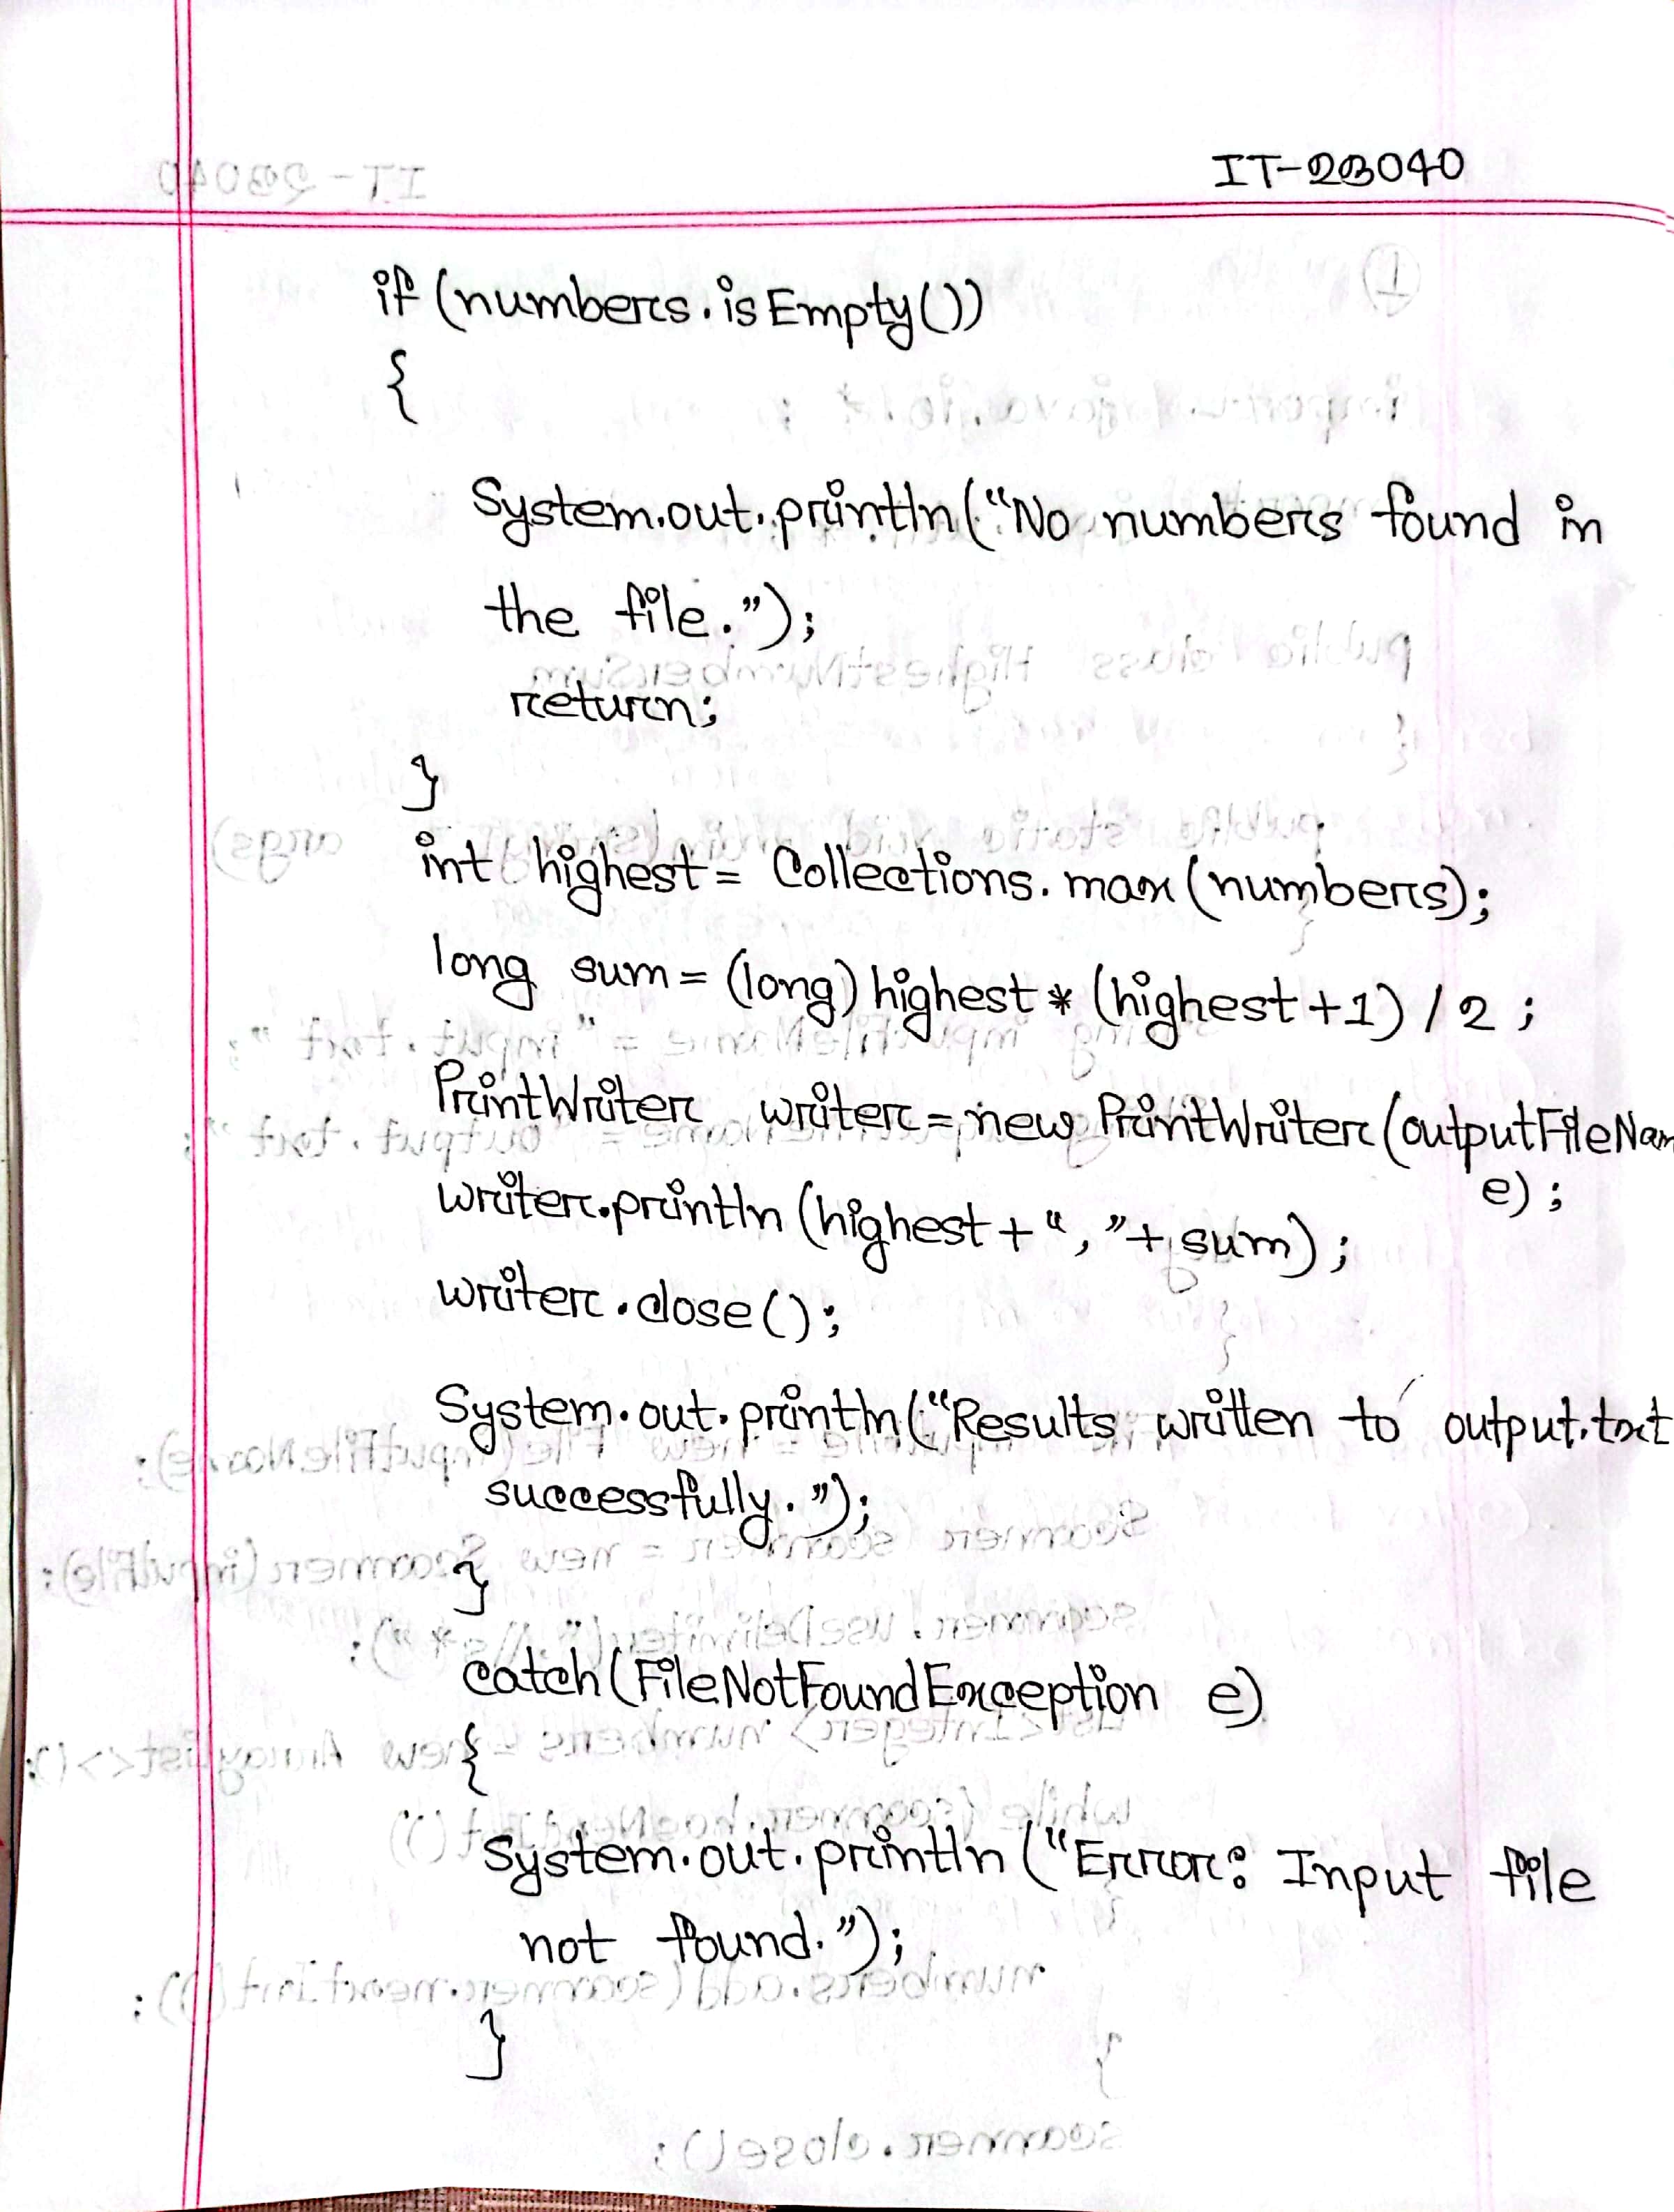 IT-23040
if (numbers.isEmpty())
{
System.out.println("No numbers found in
the file.");
return;
}
int highest = Collections.max(numbers);
long sum = (long) highest * (highest+1) / 2 ;
PrintWriter writer = new PrintWriter(outputFileNam
e) ;
writer.println (highest + "," + sum) ;
writer.close();
System.out.println("Results written to output.txt
successfully.");
}
catch (FileNotFoundException e)
{
System.out.println ("Error: Input file
not found.");
}